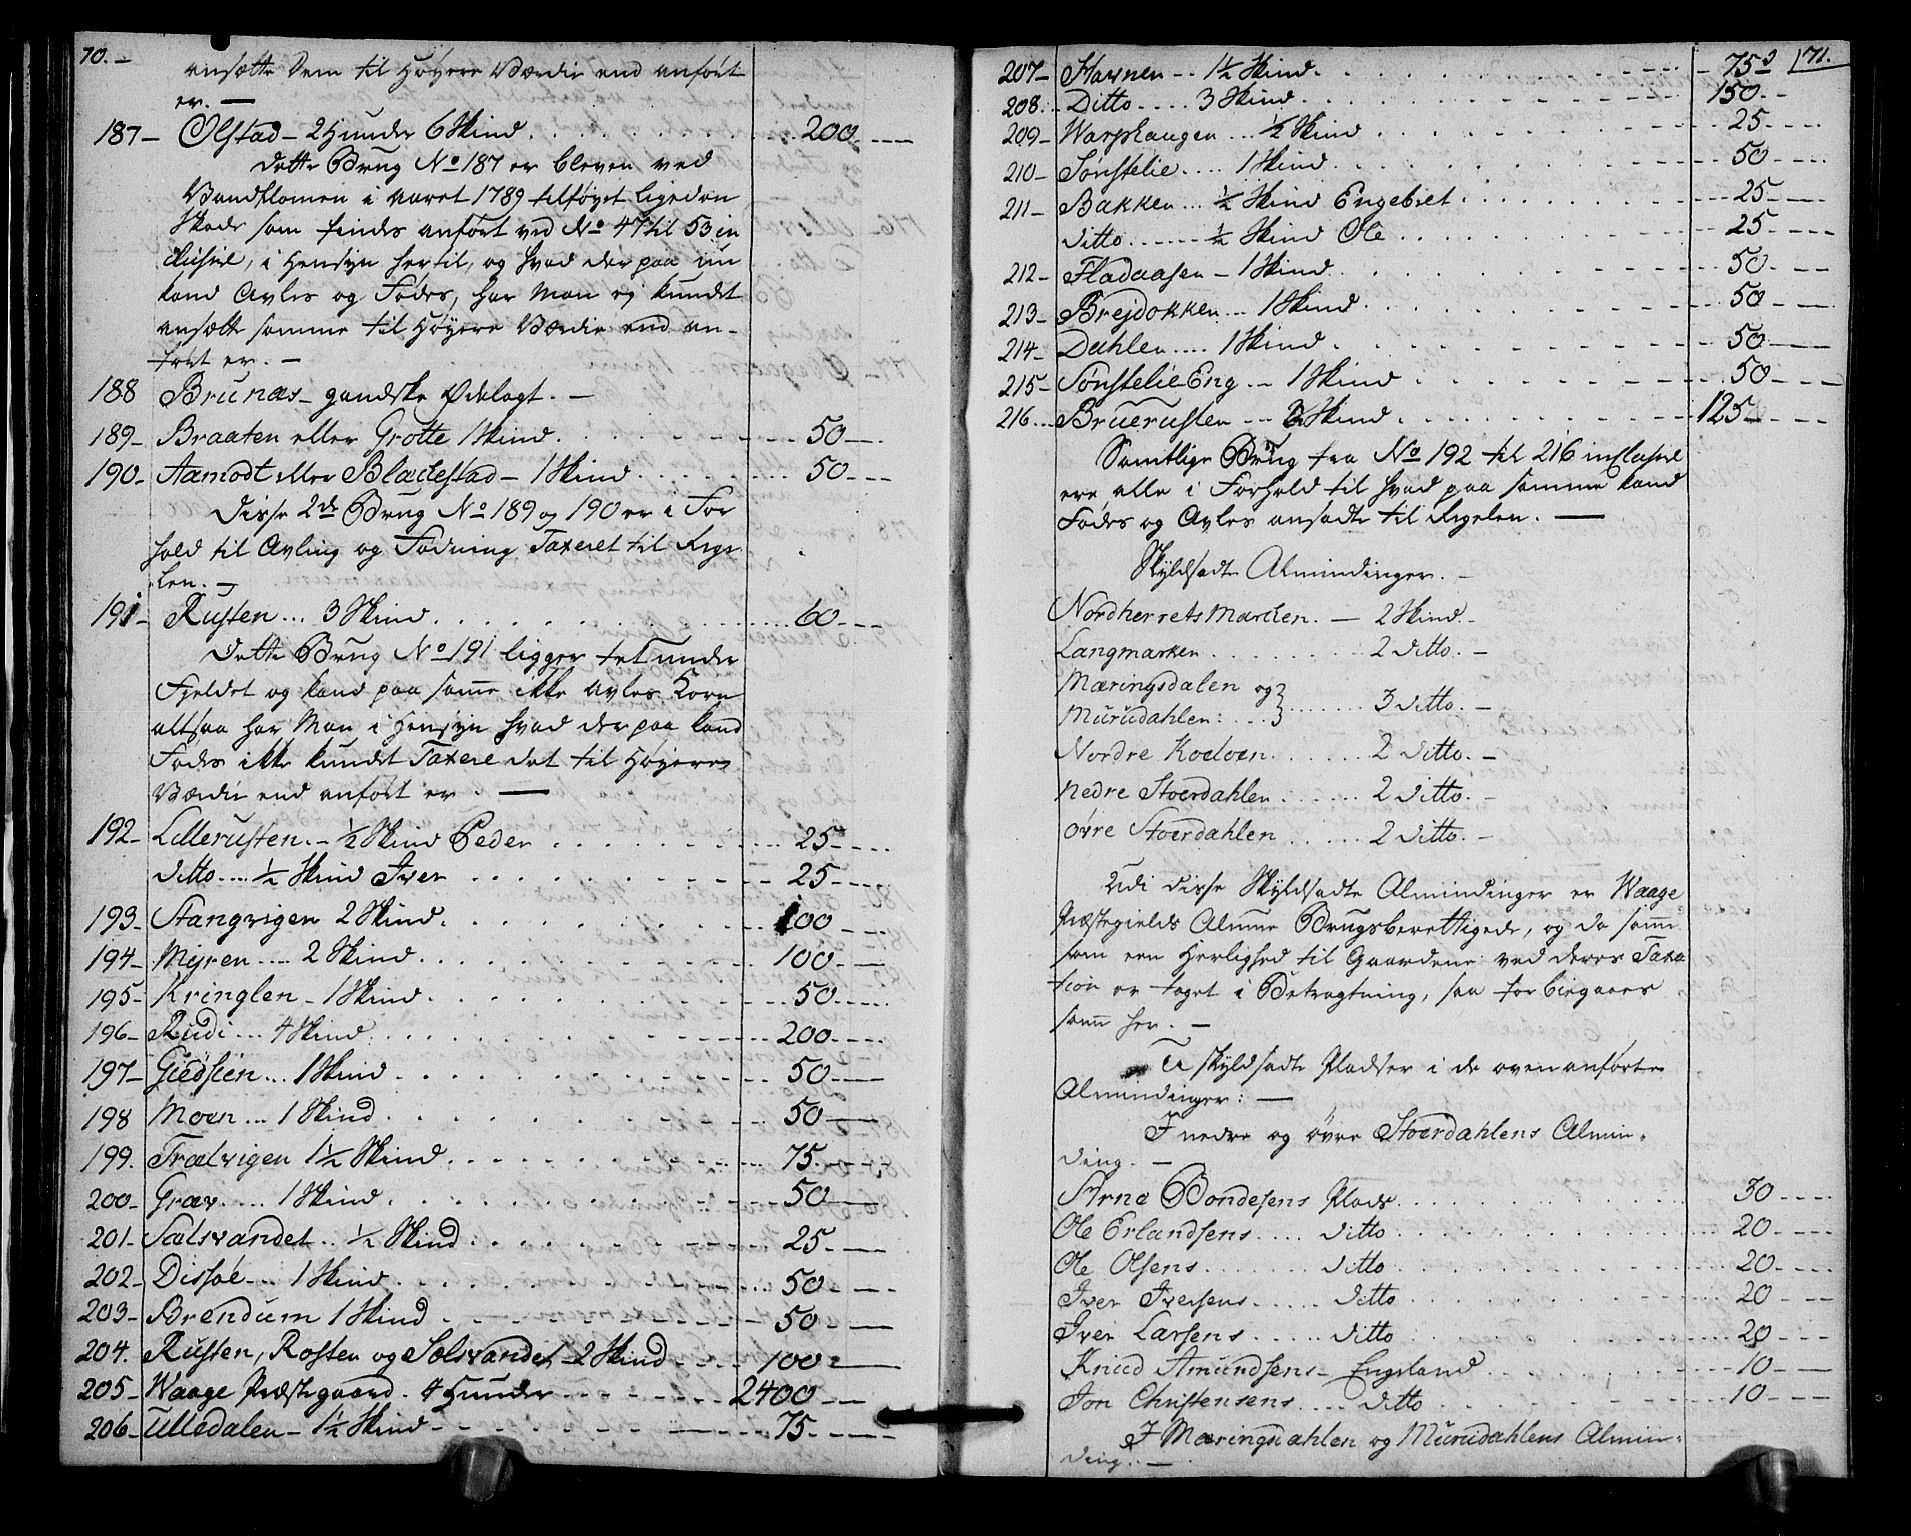 70.-
ansætte dem til Høyere Værdie end anført
er. —
187- Olstad - 2 Hunder 6 Skind . . . 200 - - -
Dette Brug No 187 er bleven ved
Vandflomen i aaret 1789 tilføyet ligedan
Skade som findes anført ved No 47 til 53 in
clusive, i Hensyn hertil, og hvad der paa nu
kand Avles og Fødes, har Man ej kundet
ansætte samme til Høyere Værdie end an-
ført er. —
188 Brunæs - gandske Ødelagt. —
189- Braaten eller Grotte 1 Skind . . . 50 - -
190- Aamodt eller Blackestad - 1 Skind . . . 50 - - -
Disse 2de Brug No 189 og 190 er i For
hold til Avling og Fødning Taxeret til Rege
len. —
191- Rusten... 3 Skind . . . 60 - - -
Dette Brug No 191 ligger tet under
Fjeldet og kand paa samme ikke avles Korn
altsaa har Man i Hensyn hvad der paa kand
Fødes ikke kundet Taxere det til Høyere
Værdie end anført er. —
192- Lillerusten. - ½ Skind Peder . . . 25 - - -
ditto.... ½ Skind Iver . . . 25 - - -
193- Stangvigen 2 Skind . . . 100 - - -
194- Myren .... 2 Skind . . . 100 - - -
195- Kringlen - 1 Skind . . . 50 - - -
196- Rudi ... 4 Skind . . . 200 - - -
197- Giedsien... 1 Skind . . . 50 - - -
198 Moen... 1 Skind . . . 50 - - -
199. Trælvigen 1½ Skind . . . 75 - - -
200- Græv.... 1 Skind . . . 50 - - -
201- Sælsvandet.. ½ Skind . . . 25 - - -
202- Dissøe... 1 Skind . . . 50 - - -
203- Brendum 1 Skind . . . 50 - - -
204. Rusten, Rosten og Sælsvandet - 2 Skind . . . 100 - - -
205- Waage Præstegaard. 4 Hunder . . . 2400 - - -
206- Ulledalen - 1½ Skind . . . 75 - - -
71.
207- Havnen - - 1½ Skind . . . 75
208... Ditto .... 3 Skind . . . 150 - -
209- Warphaugen ... ½ Skind . . . 25 - - -
210- Sønstelie.... 1 Skind . . . 50 - - -
211- Bakken... ½ Skind Engebret . . . 25 - - -
ditto...... ½ Skind Ole . . . 25 - - -
212- Fladaasen - 1 Skind . . . 50 - - -
213- Brejdokken... 1 Skind . . . 50 - - -
214- Dahlen.... 1 Skind . . . 50 - - -
215- Sønstelie Eng.. - 1 Skind . . . 50 - - -
216... Bruerusten - - - Skind . . . 125 - - -
Samtlige Brug fra No 192 til 216 inclusive
ere alle i Forhold til hvad paa samme kand
Fødes og Avles ansadte til Regelen. —
Skyldsadte Almindinger. —
Nordherretsmarken. — 2 Skind. -
Langmarken . . . 2 ditto. -
Mæringsdalen og
Murudahlen: . . . 3 ditto. -
Nordre Koeloen . . . 2 ditto. -
nedre Stoerdahlen . . . 2 ditto. -
øvre Stoerdahlen . . . 2 ditto. -
Udi disse Skyldsadte Almindinger er Waage
Præstegields Almue Brugsberettigede, og da samme
som een Herlighed til Gaardene ved deres Taxa
tion er taget i Betragtning, saa forbiegaaes
samme her. —
U skyldsadte Pladser i de ovenanførte
Almindinger: —
I nedre og øvre Stoerdahlens Almin-
ding. —
Arne Bondesens Plads . . . 30 - - -
Ole Erlandsens .... ditto . . . 20 - - -
Ole Olsens ...... ditto . . . 20 - - -
Iver Iversens ..... ditto . . . 20 - - -
Iver Larsens ..... ditto . . . 20 - - -
Knud Amundsens - Engeland . . . 10 - - -
Jon Christensens .... ditto . . . 10 - - -
I Mæringsdahlen og Murudahlens Almin-
ding. —